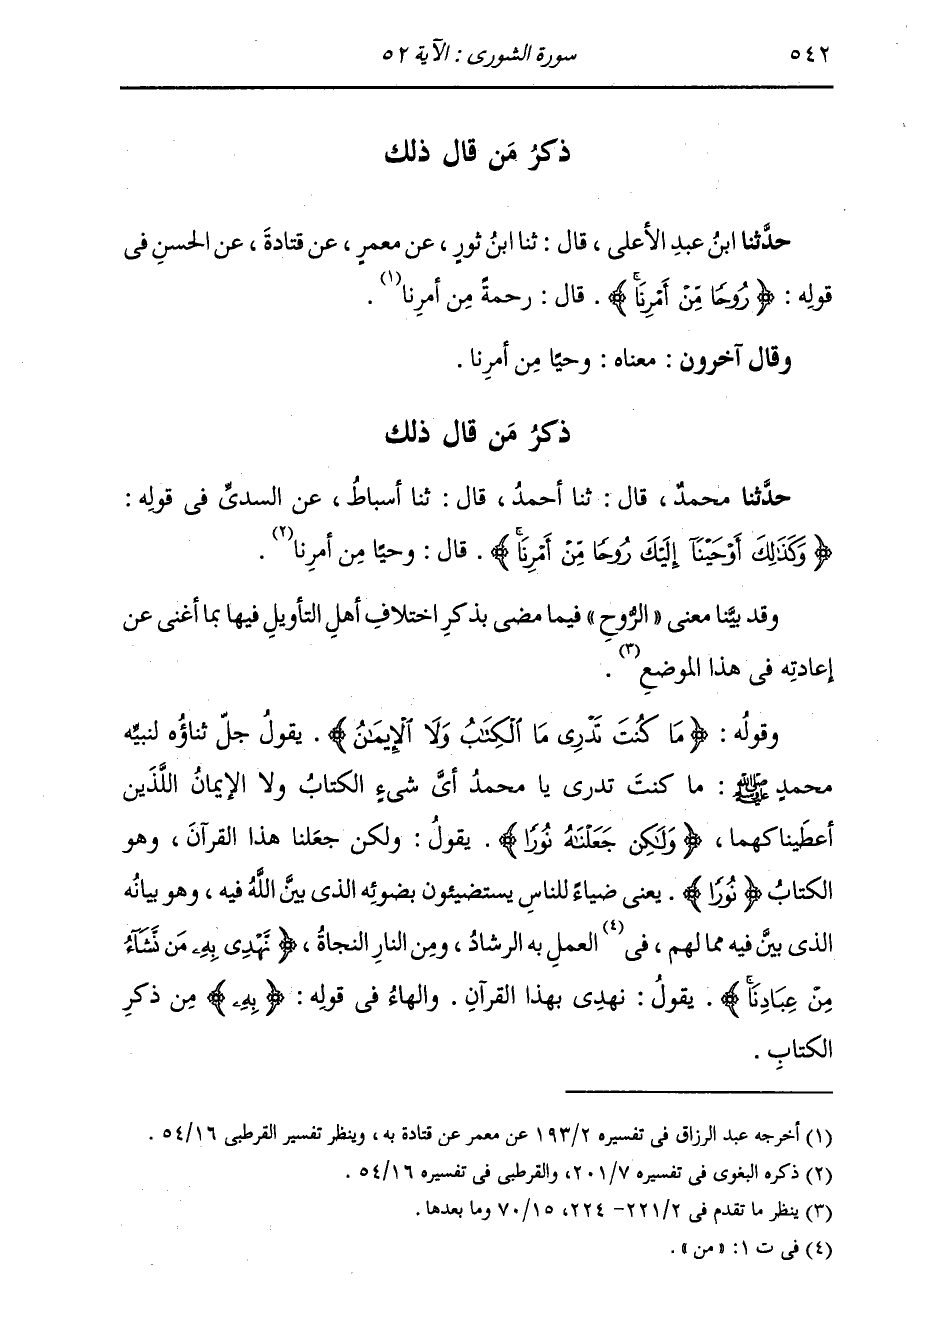 ٥٤٢ سورة الشورى : الآية ٥٢
ذكرُ مَن قال ذلك
حدَّثنا ابنُ عبدِ الأعلى ، قال : ثنا ابنُ ثورٍ ، عن معمرٍ ، عن قتادةَ ، عن الحسنِ فى
قولِه : ﴿ رُوحًا مِّنْ أَمْرِنَاۚ ﴾ . قال : رحمةً مِن أمرِنا(١) .
وقال آخرون : معناه : وحيًا مِن أمرِنا .
ذكرُ مَن قال ذلك
حدَّثنا محمدٌ ، قال : ثنا أحمدُ ، قال : ثنا أسباطُ ، عن السدىِّ فى قولِه :
﴿ وَكَذَٰلِكَ أَوْحَيْنَآ إِلَيْكَ رُوحًا مِّنْ أَمْرِنَاۚ ﴾ . قال : وحيًا مِن أمرِنا(٢) .
وقد بيَّنا معنى « الرُّوحِ » فيما مضى بذكرِ اختلافِ أهلِ التأويلِ فيها بما أغنى عن
إعادتِه فى هذا الموضعِ(٣) .
وقولُه : ﴿ مَا كُنتَ تَدْرِى مَا ٱلْكِتَٰبُ وَلَا ٱلْإِيمَٰنُ ﴾ . يقولُ جلَّ ثناؤُه لنبيِّه
محمدٍ ﷺ : ما كنتَ تدرى يا محمدُ أىَّ شىءٍ الكتابُ ولا الإيمانُ اللَّذَين
أعطَيناكهما ، ﴿ وَلَٰكِن جَعَلْنَٰهُ نُورًا ﴾ . يقولُ : ولكن جعَلنا هذا القرآنَ ، وهو
الكتابُ ﴿ نُورًا ﴾ . يعنى ضياءً للناسِ يستضيئون بضوئِه الذى بينَّ اللَّهُ فيه ، وهو بيانُه
الذى بينَّ فيه مما لهم ، فى(٤) العملِ به الرشادُ ، ومِن النارِ النجاةُ ، ﴿ نَّهْدِى بِهِۦ مَن نَّشَآءُ
مِنْ عِبَادِنَاۚ ﴾ . يقولُ : نهدِى بهذا القرآنِ . والهاءُ فى قولِه : ﴿ بِهِۦ ﴾ مِن ذكرِ
الكتابِ .
(١) أخرجه عبد الرزاق فى تفسيره ١٩٣/٢ عن معمر عن قتادة به ، وينظر تفسير القرطبى ٥٤/١٦ .
(٢) ذكره البغوى فى تفسيره ٢٠١/٧، والقرطبى فى تفسيره ٥٤/١٦ .
(٣) ينظر ما تقدم فى ٢٢١/٢- ٢٢٤، ٧٠/١٥ وما بعدها .
(٤) فى ت ١: « من » .